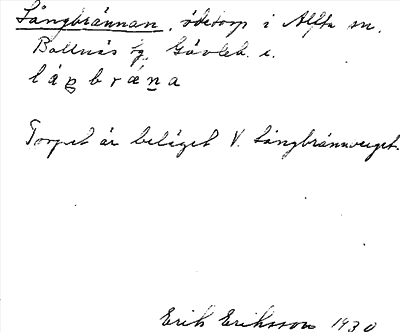 Långbrännan, ödetorp i Alfta sn.
Bollnäs tg. Gävleb. l.
låŋbrän̲a
Torpet är beläget V. Långbrännberget.
Erik Eriksson 1930